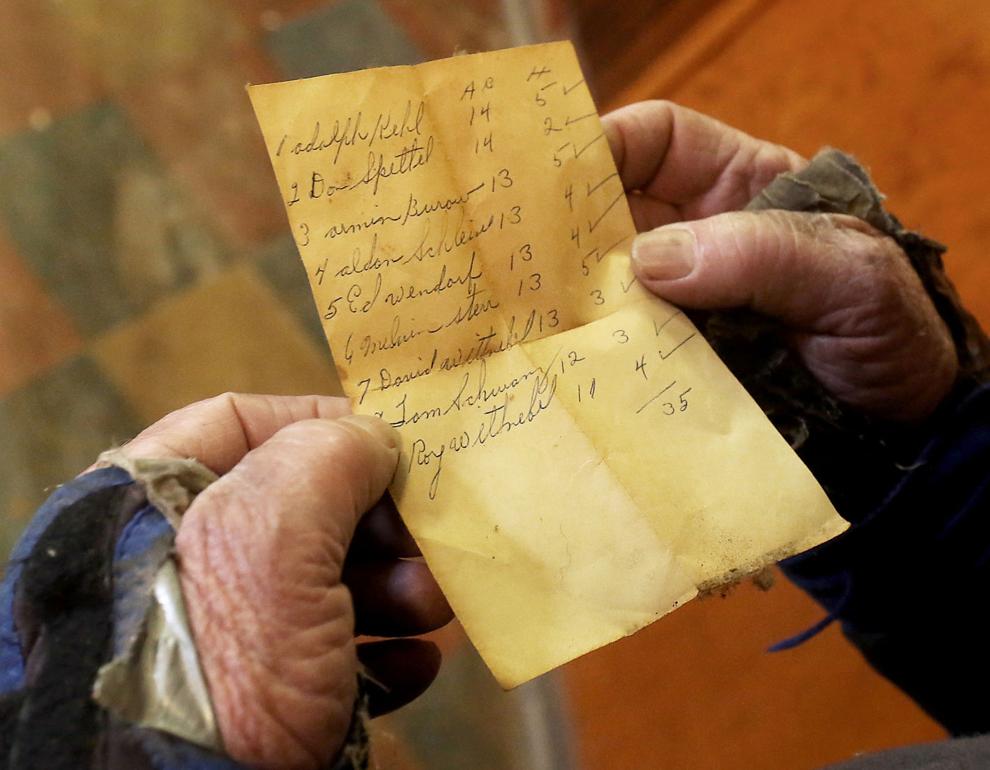 AB H
1 adolph Kehl 14 5 ✓
2 Don Spittel 14 2 ✓
3 armin Burow 13 5 ✓
4 aldon 13 4 ✓
5 Ed Wendorf 13 4 ✓
6 Melvin Sterr 13 5 ✓
7 David Wittnebel 13 3 ✓
Tom Schwanz 12 3 ✓
Roy Wittnebel 11 4 ✓
35